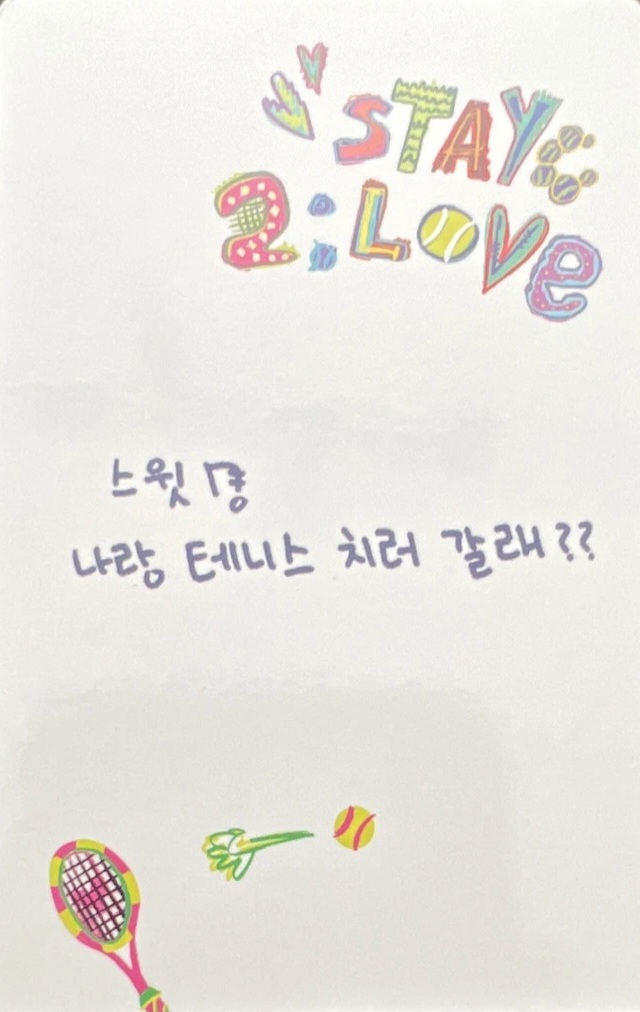 STAYC
2:LOVe
스윗
나랑 테니스 치러 갈래??